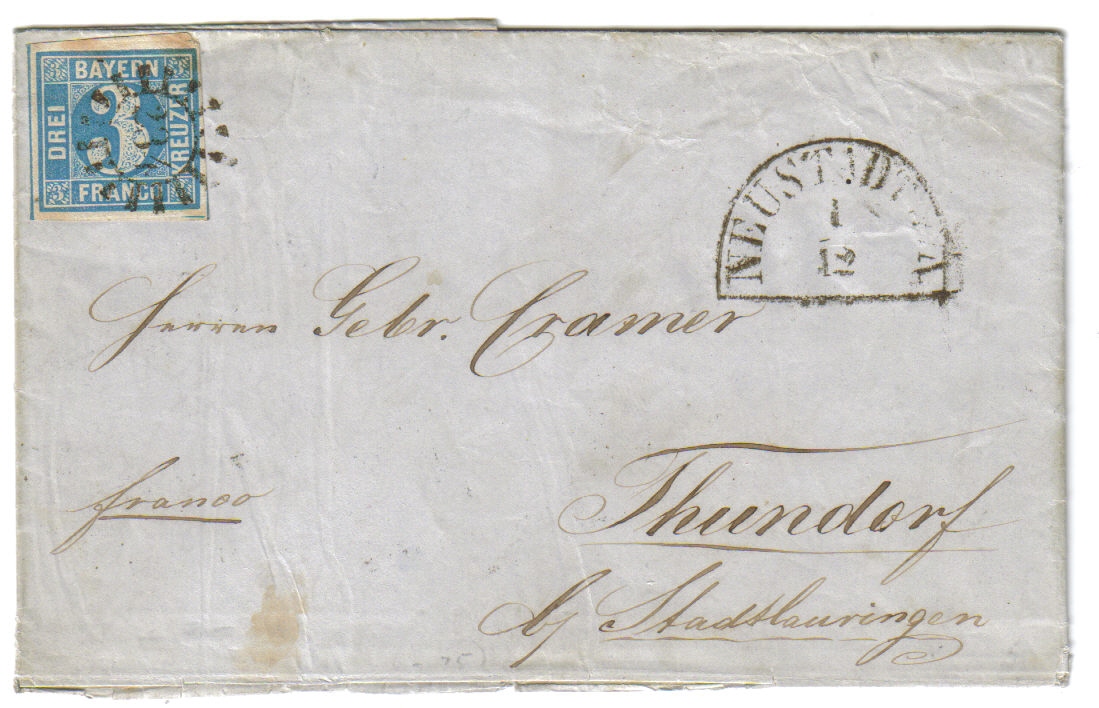 BAYERN
DREI
3
KREUZER
FRANCO
NEUSTADT
1
12
Herren Gebr. Cramer
franco
Thundorf
b/ Stadtlauringen